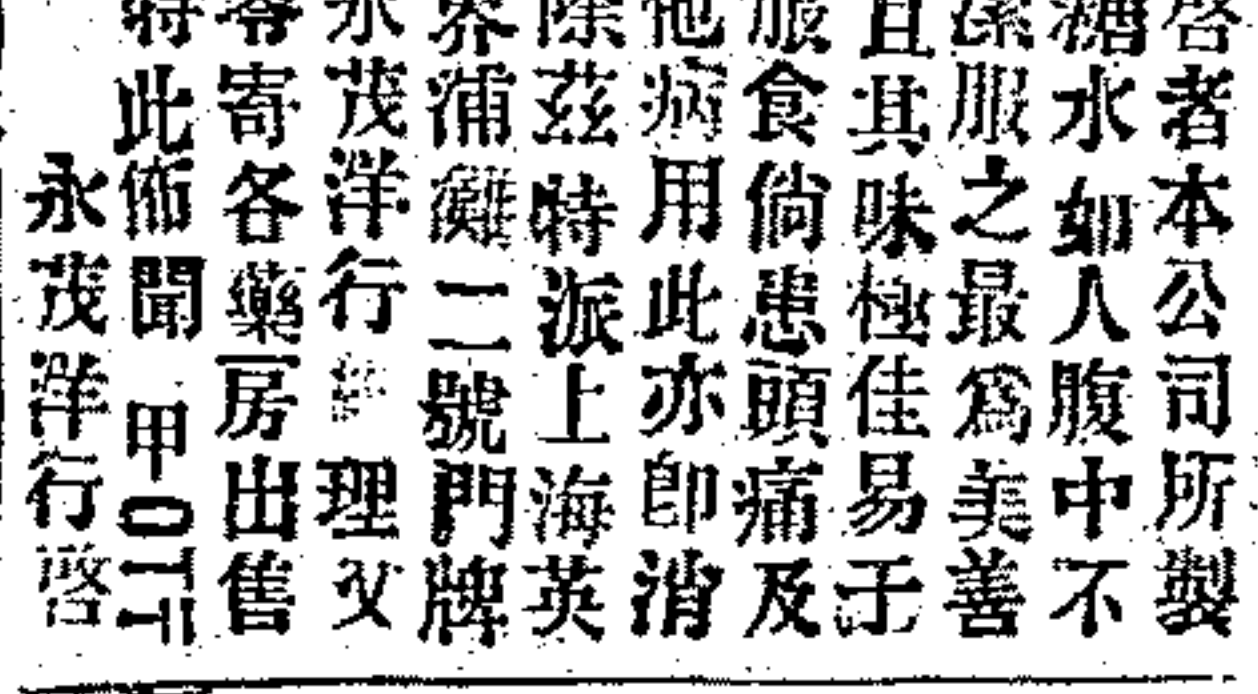 啓者本公司所製
糖水如人腹中不
潔服之最爲美善
且其味極佳易于
服食倘患頭痛及
他病用此亦卽消
除茲特派上海英
界浦灘二號門牌
永茂洋行經理父
零寄各藥房出售
特此佈聞 甲〇二一
永茂洋行啓